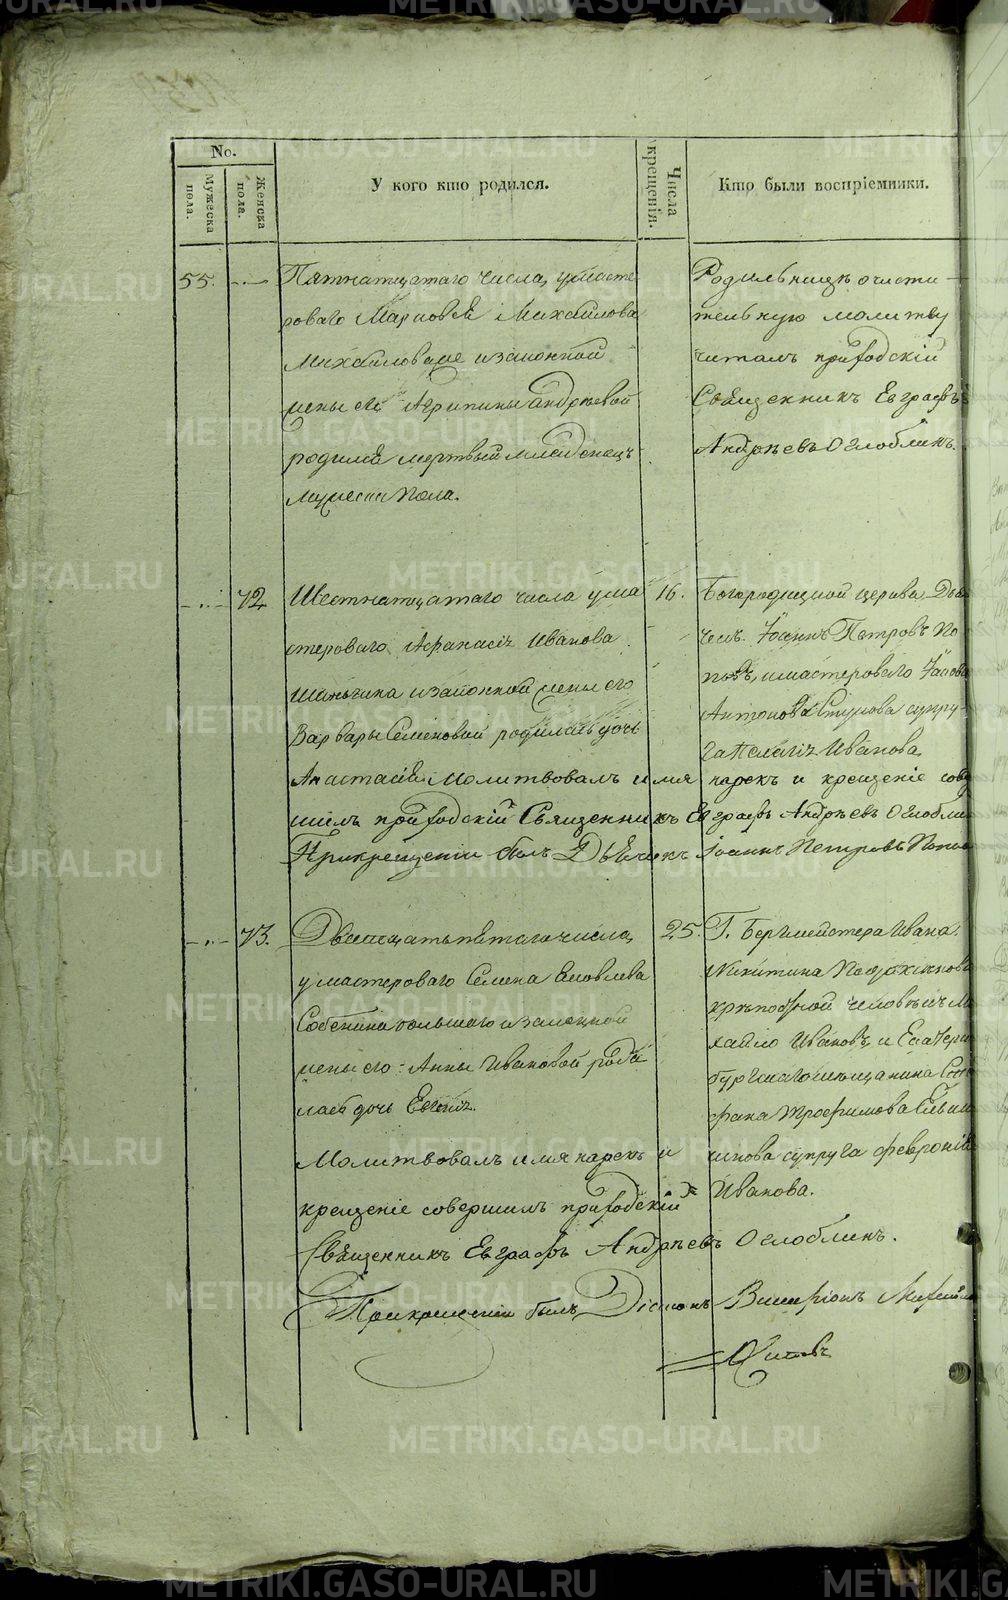 No.
Мужеска пола.
Женска пола.
У кого кто родился.
Числа крещенія.
Кто были воспріемники.
55.
Пятнатцатаго числа, умасте-
роваго Михайлова
изаконной
жены его Агрипины Андрѣевой
родился мертвый младенецъ
мужеска пола.
Родильницѣ очисти-
тельную молитву
читалъ приходскій
Священникъ Евграфъ
Андрѣевъ Оглоблинъ.
72
Шестнатцатаго числа ума
стероваго Афанасія Иванова
изаконной жены его
Варвары Семеновой родилась дочь
Анастасія Молитвовалъ имя нарекъ и крещеніе совер
шилъ приходскій Священникъ Евграфъ Андрѣевъ Оглоблин
Прикрещеніи былъ Дьячокъ Іоаннъ Петровъ Попов
16.
Богородицкой церкви Дья
чекъ Іоаннъ Петровъ По
повъ, имастероваго
Антонова супру-
га Пелагія Иванова
73.
Дватцать пятаго числа,
умастероваго Семена Яковлева
Собенина большаго изаконной
жены его Анны Ивановой роди
лась дочь Евгенія.
Молитвовалъ имя нарекъ и
крещеніе совершилъ приходскій
Священникъ Евграфъ Андрѣевъ Оглоблинъ.
Прикрещеніи былъ Діаконъ
25.
Г. Бергмейстера Ивана
Никитина
крѣпостной человѣкъ Ми
хайло Ивановъ, и Екатерин
бургскаго мещанина Сте
фана Трофимова
супруга Февронія
Иванова.
METRIKI.GASO-URAL.RU